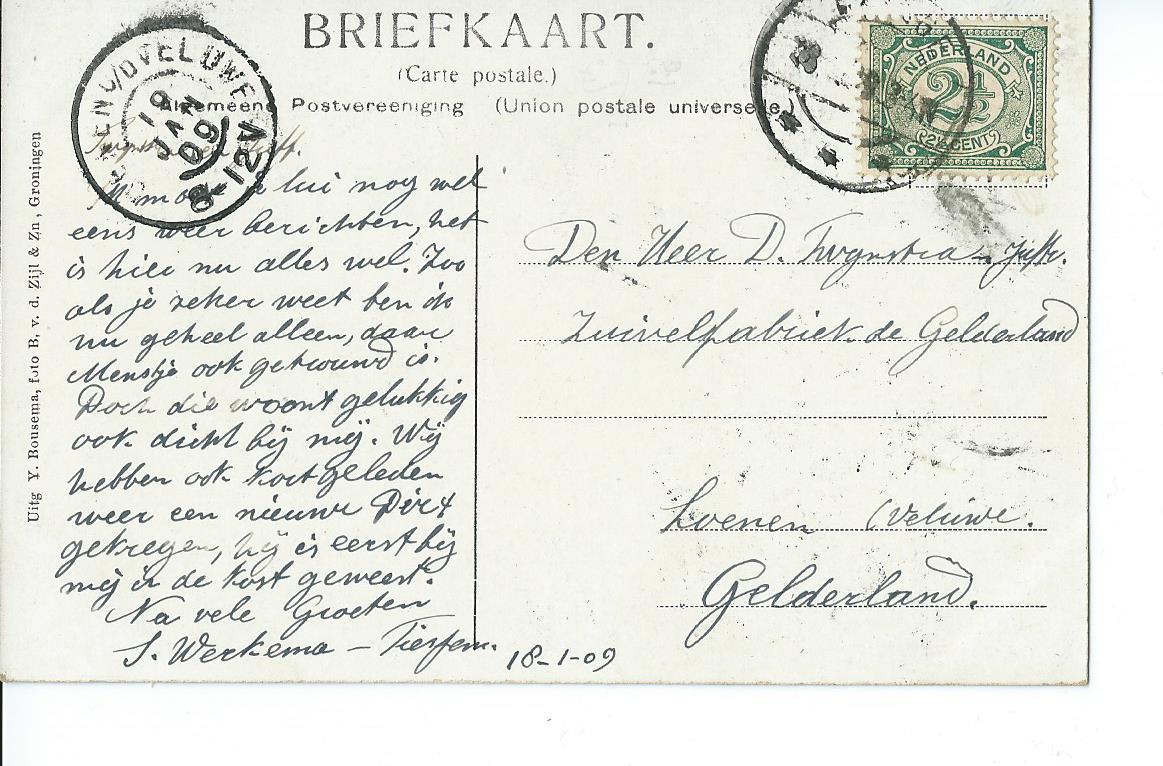 BRIEFKAART.
(Carte postale.)
Algemeene Postvereeniging (Union postale universelle
LOENEN O/D VELUWE
19 JAN 09
8-12V
NEDERLAND
2½
(2½ CENT)
Uitg Y. Bousema, foto B. v. d. Zijl & Zn, Groningen
lui nog wel
eens weer berichten, het
is hier nu alles wel. Zoo
als je zeker weet ben ik
nu geheel alleen, daar
Menstje ook getrouwd is.
Doch die woont gelukkig
ook dicht bij mij. Wij
hebben ook kort geleden
weer een nieuwe Dirt
gekregen, hij is eerst bij
mij in de kost geweest.
Na vele Groeten
S. Werkema —
18-1-09
Den Heer D. Twynstra
Zuivelfabriek de Gelderland
Loenen (Veluwe.
Gelderland.